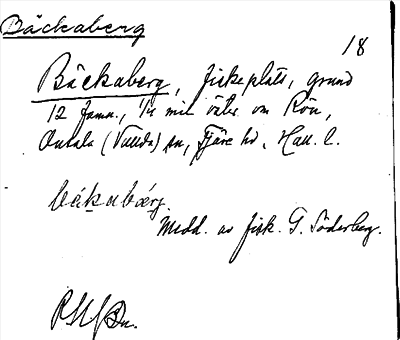 Bäckaberg
18
Bäckaberg, fiskeplats, grund
12 famn., 1/4 mil väster om Rön,
Onsala (Vallda) sn, Fjäre hd, Hall. l.
Medd. av fisk. G. Söderberg.